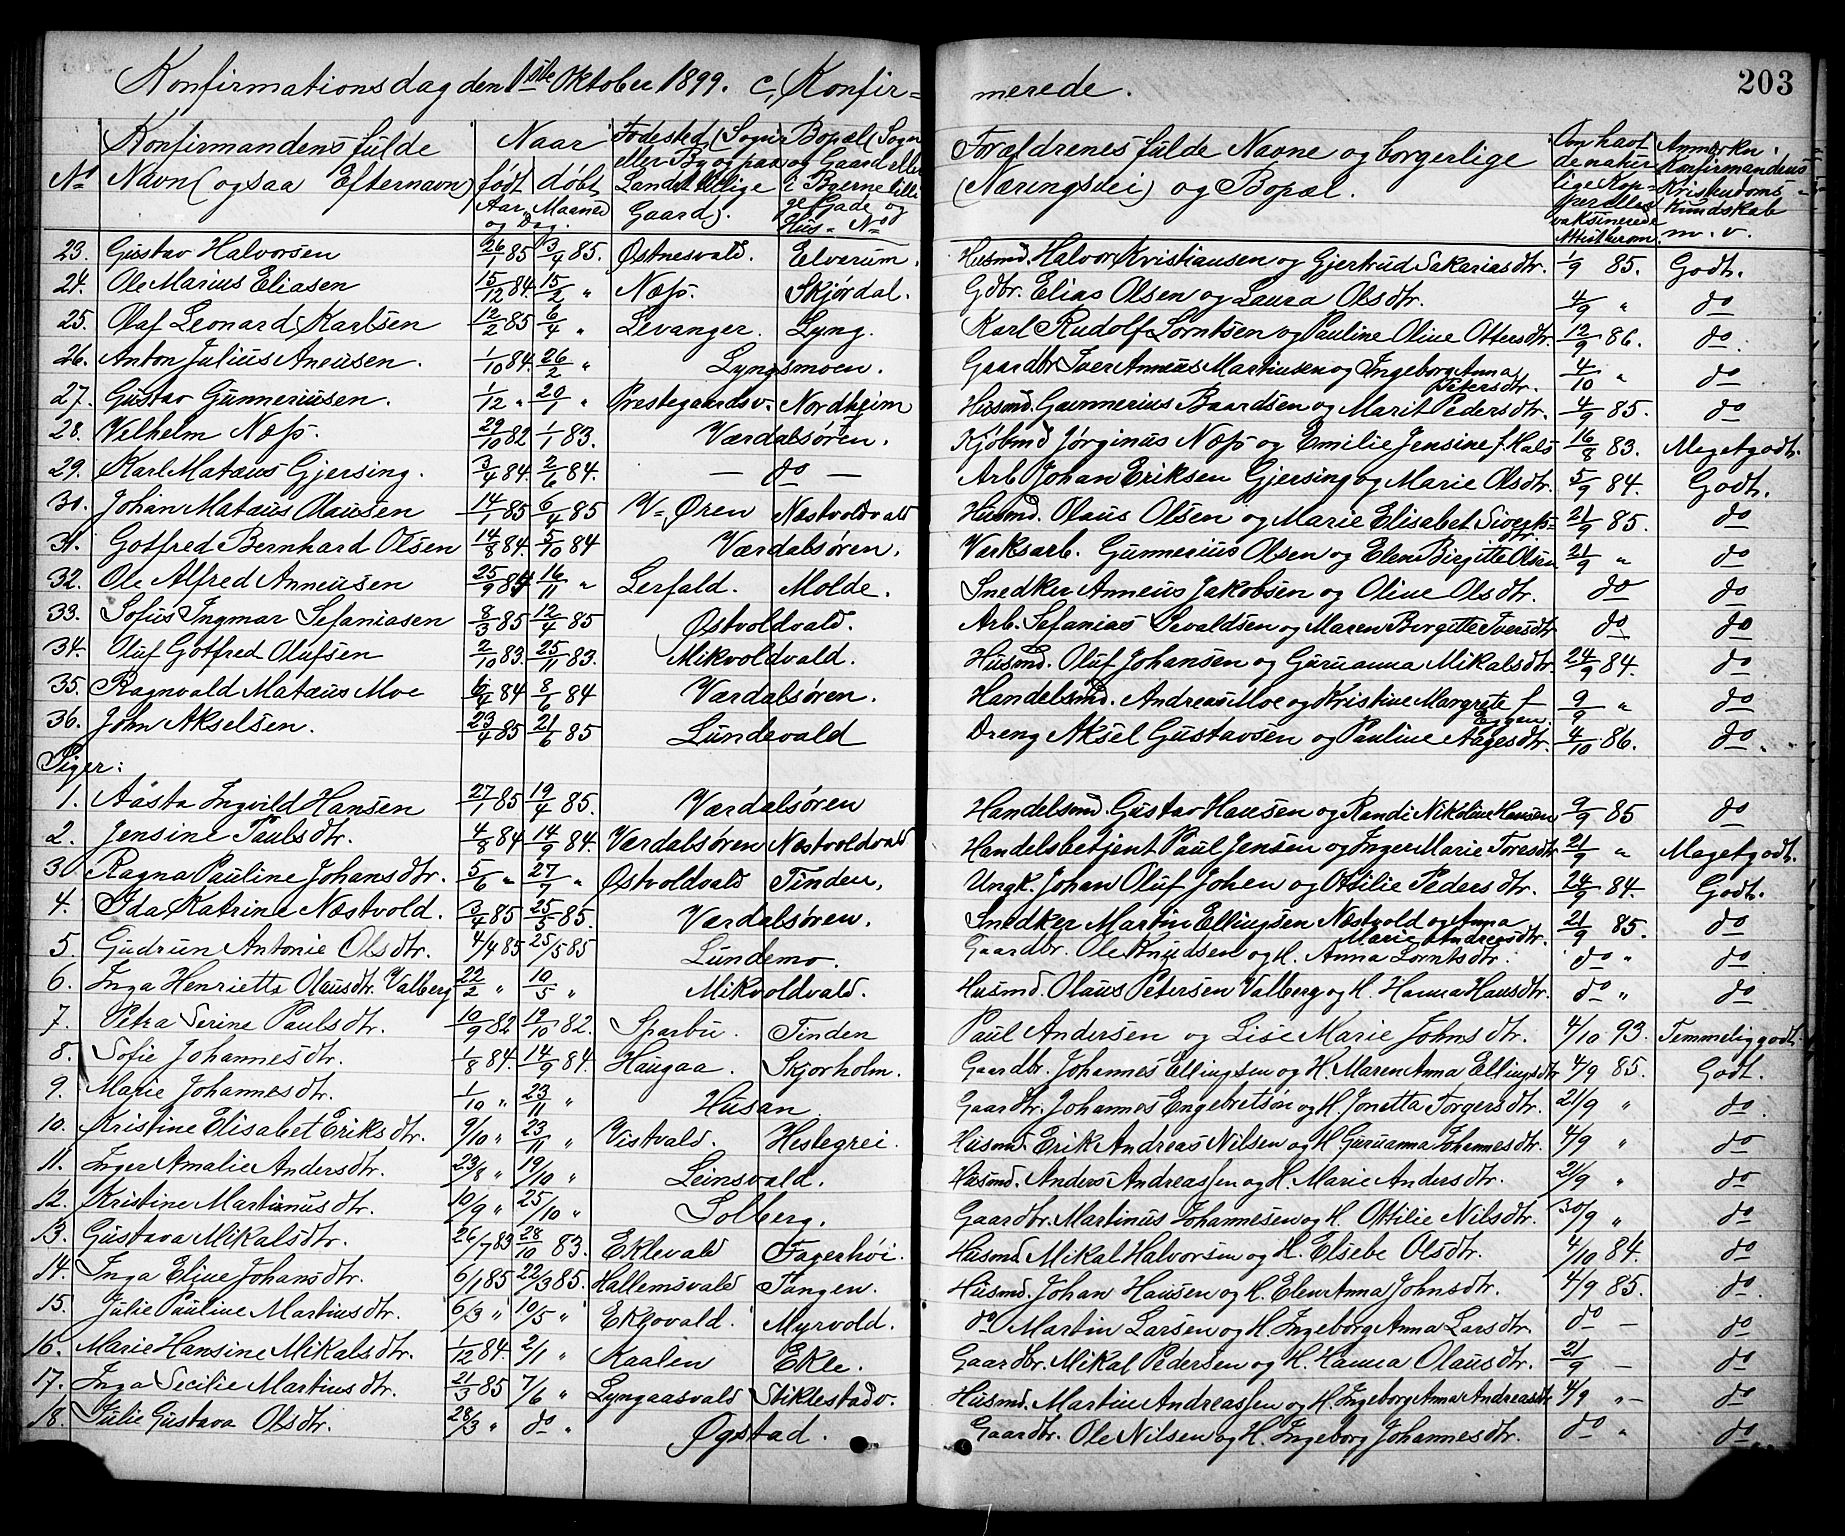 203
Konfirmationsdag den 1ste Oktober 1899. c, Konfirmerede.
No Konfirmandens fulde Navn (ogsaa Efternavn) Naar født døbt Aar, Maaned og Dag. Fødested (Sogn eller By og paa Landet tillige Gaard). Bopæl (Sogn og Gaard eller i Byerne tillige Gade og Hus-No Forældrenes fulde Navne og borgerlige (Næringsvei) og Bopæl. Om havt de naturlige Kopper eller vaksinerede Attest herom. Anmerkn. Konfirmandens Kristendomskundskab m. v.
23. Gustav Halvorsen 26/1 85 3/4 85. Østnesvald. Elverum. Husmd. Halvor Kristiansen og Gjertrud Sakariasdtr. 1/9 85. Godt.
24. Ole Marius Eliasen 15/12 84. 15/2 " Næss. Skjørdal. Gdbr. Elias Olsen og Laura Olsdtr. 4/9 " do
25. Olaf Leonard Karlsen 12/2 85 6/4 " Levanger. Lyng. Karl Rudolf Lorntsen og Pauline Oline Ottersdtr. 12/9 86. do
26. Anton Julius Aneusen. 1/10 84. 26/2 " Lyngsmoen. Gaardbr. Iver Anneus Martinsen og Ingeborg Anna Petersdtr. 4/10 " do
27. Gustav Gunneriusen. 1/12 " 20/1 " Prestegaardsv. Nordheim Husmd. Gunnerius Baardsen og Marit Pedersdtr. 4/9 85. do
28. Vilhelm Næss. 29/10 82 1/1 83. Værdalsøren. Kjøbmd Jørginus Næss og Emilie Jensine f. Hals 16/8 83. Megetgodt.
29. Karl Matæus Gjersing. 3/4 84. 2/6 84. — do — Arb. Johan Eriksen Gjersing og Marie Olsdtr. 5/9 84. Godt.
30. Johan Matæus Olausen 14/1 85 6/4 85 V-Øren Næstvoldvald Husmd. Olaus Olsen og Marie Elisabet 21/9 85. do
31. Gotfred Bernhard Olsen 14/8 84. 5/10 84 Værdalsøren. Verksarb. Gunnerius Olsen og Elen Birgitte Olsen 21/9 " do
32. Ole Alfred Anneusen 25/9 84 16/11 " Lerfald. Molde. Snedker Anneus Jakobsen og Oline Olsdtr. do do
33. Sofus Ingmar Sefaniasen 8/3 85 12/4 85 Østvoldvald. Arb. Sefanias Sevaldsen og Maren Birgitte Iversdtr do do
34. Oluf Gotfred Olufsen 2/10 83. 25/11 83. Mikvoldvald. Husmd. Oluf Johansen og Guruanna Mikalsdtr. 24/9 84. do
35. Ragnvald Matæus Moe 84 8/6 84 Værdalsøren. Handelsmd. Andreas Moe og Kristine Margrete f Eggen. 9/9 " do
36. John Akselsen. 23/4 85 21/6 85 Lundevald Dreng Aksel Gustavsen og Pauline Aagesdtr. 4/10 86. do
Piger:
1. Aasta Ingvild Hansen 27/1 85 19/4 85. Værdalsøren Handelsmd. Gustav Hansen og Randi Nikoline Hansen 9/9 85 do
2. Jensine Paulsdtr. 4/8 84 14/9 84. Værdalsøren Næstvoldvald Handelsbetjent Paul Jensen og Inger Marie Toresdtr 21/9 " Megetgodt.
3. Ragna Pauline Johansdtr. 5/6 " 27/7 " Østvoldvald Tinden. Ungk. Johan Oluf Johsen og Ottilie Pedersdtr. 24/9 84. Godt.
4. Ida Katrine Næstvold. 3/4 85 25/5 85. Værdalsøren. Snedker Martin Ellingsen Næstvold og Anna Marie Andreasdtr. 21/9 85. do
5. Gudrun Antonie Olsdtr. 4/4 85 25/5 85 Lundemo. Gaardbr. Ole Knudsen og H. Anna Lorntsdtr. do " do
6. Inga Henriette Olausdtr. Valberg 22/2 " 10/5 " Mikvoldvald. Husmd. Olaus Petersen Valberg og H. Hanna Hansdtr. do " do
7. Petra Serine Paulsdtr. 10/9 82 19/10 82. Sparbu. Tinden Paul Andersen og Lise Marie Johnsdtr. 4/10 93. Temmeliggodt.
8. Sofie Johannesdtr. 1/8 84. 14/9 84. Haugaa. Skjørholm. Gaardbr. Johannes Ellingsen og H. Maren Anna Ellingsdtr 4/9 85. Godt.
9. Marie Johannesdtr. 1/10 " 23/11 " Husan Gaardbr. Johannes Engebretsen og H. Jonetta Torgersdtr. 21/9 " do
10. Kristine Elisabet Eriksdtr. 9/10 " 23/11 " Vistvald. Hestegrei. Husmd. Erik Andreas Nilsen og H Guruanna Johannesdtr. 4/9 " do
11. Inger Amalie Andersdtr. 23/8 " 19/10 " Leinsvald. Husmd. Anders Andreassen og H. Marie Andersdtr. 21/9 " do
12. Kristine Martinusdtr. 10/9 " 25/10 " Solberg. Gaardbr. Martinus Johannesen og H. Ottilie Nilsdtr. 30/9 " do
13. Gustava Mikalsdtr. 26/7 83 28/10 83. Eklevald Fagerhøi. Husmd. Mikal Halvorsen og H. Elsebe Olsdtr. 4/10 84. do
14. Inga Eline Johansdtr. 6/1 85 22/3 85. Hallemsvald Tangen. Husmd. Johan Hansen og H. Elen Anna Johnsdtr. 4/9 85. do
15. Julie Pauline Martinsdtr. 6/3 " 10/5 " Eklovald. Myrvold. do Martin Larsen og H. Ingeborg Anna Larsdtr. do — do
16. Marie Hansine Mikalsdtr. 1/12 84. 2/1 " Kaalen Ekle. Gaardbr. Mikal Pedersen og H. Hanna Olausdtr. 21/9 — do
17. Inga Secilie Martinsdtr. 21/3 85 7/6 " Lyngaasvald Stiklestadv. Husmd. Martin Andreassen og H. Ingeborg Anna Andreasdtr 4/9 " — do
18. Julie Gustava Olsdtr. 28/3 " do " Øgstad. Gaardbr. Ole Nilsen og H. Ingeborg Johannesdtr. do " do